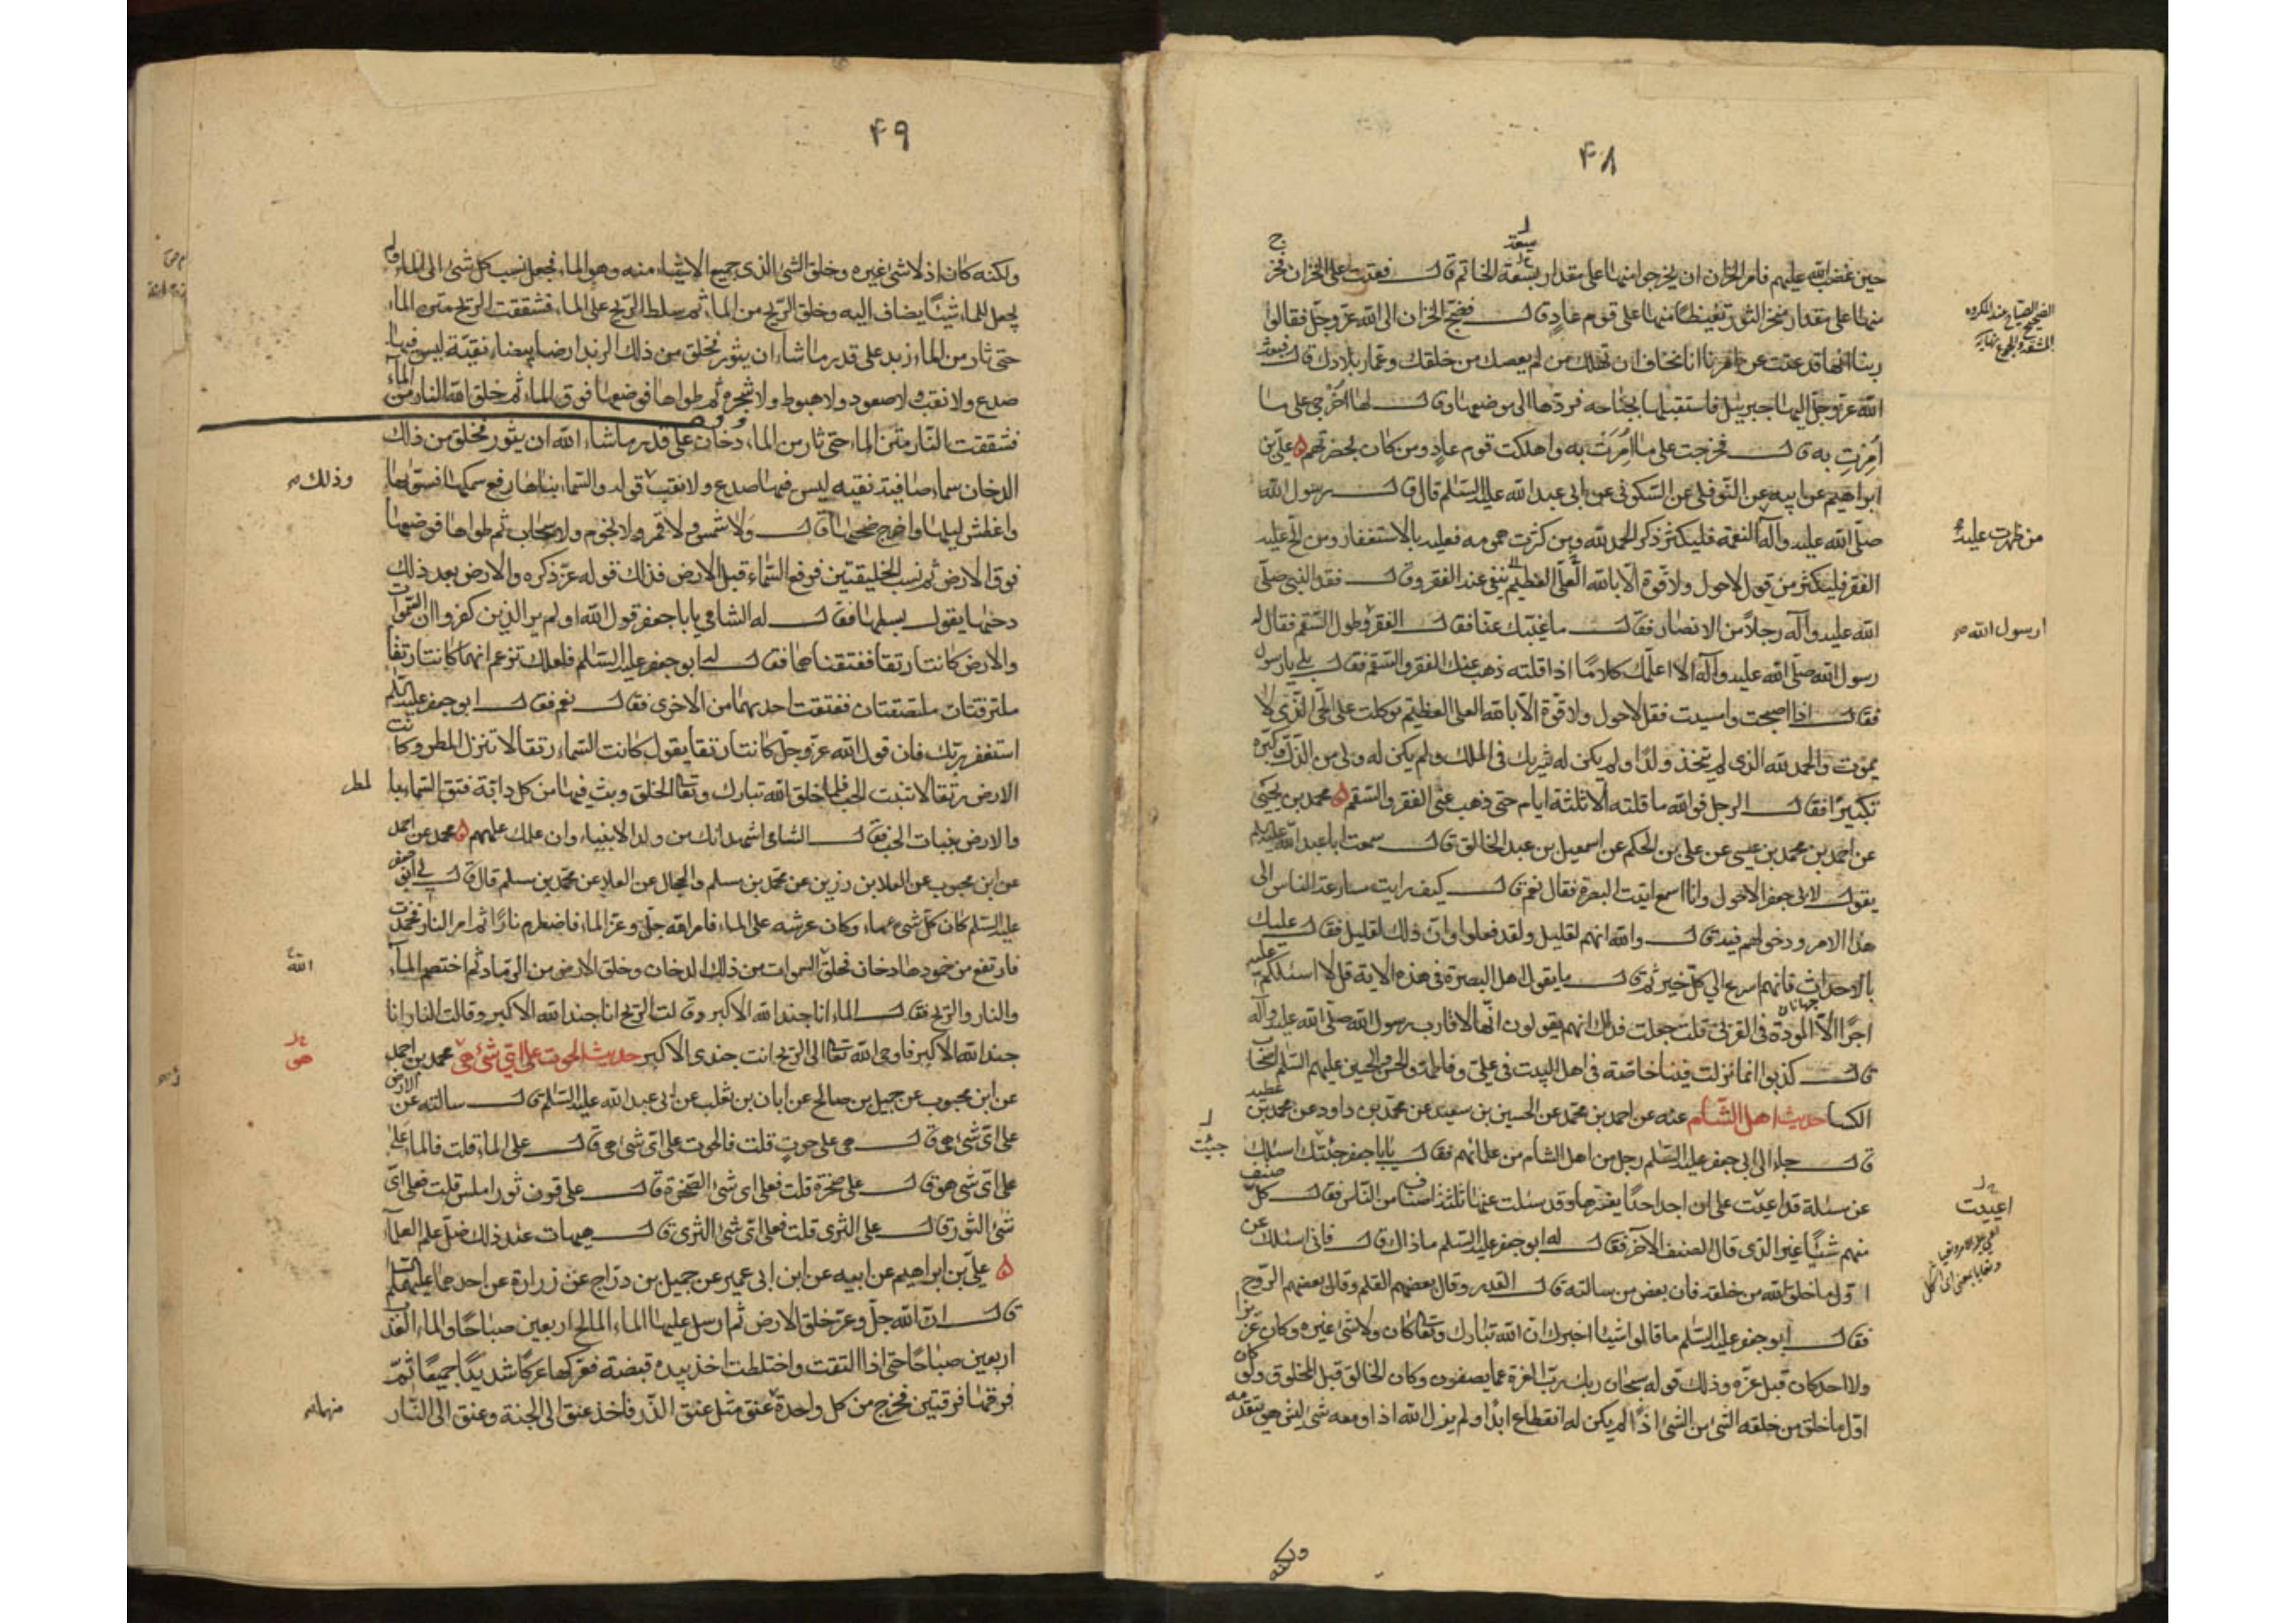 ۴۸
حين غضب الله عليهم فامر الخزان ان يخرجوا منها على مقدار سعة الخاتم قال فعتت على الخزان فخرج
منها على مقدار منخر الثور تغيظا منها على قوم عاد قال فضج الخزان الى الله عز وجل فقالوا
ربنا انها قد عتت عن امرنا انا نخاف ان تهلك من لم يعصك من خلقك وعمار بلادك قال فبعث
الله عز وجل اليها جبرئيل فاستقبلها بجناحه فردها الى موضعها وقال لها اخرجي على ما
امرت به قال فخرجت على ما امرت به واهلكت قوم عاد ومن كان بحضرتهم ه علي بن
ابراهيم عن ابيه عن النوفلي عن السكوني عن ابي عبد الله عليه السلم قال قال رسول الله
صلى الله عليه وآله النعمة فليكثر ذكر الحمد لله ومن كثرت همومه فعليه بالاستغفار ومن الح عليه
الفقر فليكثر من قول لا حول ولا قوة الا بالله العلي العظيم ينفي عنه الفقر وقال فقد النبي صلى
الله عليه وآله رجلا من الانصار فقال ما غيبك عنا فقال الفقر وطول السقم فقال له
رسول الله صلى الله عليه وآله الا اعلمك كلاما اذا قلته ذهب عنك الفقر والسقم فقال بلى يا رسول
فقال اذا اصبحت وامسيت فقل لا حول ولا قوة الا بالله العلي العظيم توكلت على الحي الذي لا
يموت والحمد لله الذي لم يتخذ ولدا ولم يكن له شريك في الملك ولم يكن له ولي من الذل وكبره
تكبيرا فقال الرجل فوالله ما قلته الا ثلثة ايام حتى ذهب عني الفقر والسقم ه محمد بن يحيى
عن احمد بن محمد بن عيسى عن علي بن الحكم عن اسمعيل بن عبد الخالق قال سمعت ابا عبد الله عليه السلم
يقول لابي جعفر الاحول وانا اسمع اتيت البصرة فقال نعم قال كيف رايت مسارعة الناس الى
هذا الامر ودخولهم فيه قال والله انهم لقليل ولقد فعلوا وان ذلك لقليل فقال عليك
بالاحداث فانهم اسرع الى كل خير ثم قال ما يقول اهل البصرة في هذه الاية قل لا اسئلكم عليه
اجرا الا المودة في القربى قلت جعلت فداك انهم يقولون انها لاقارب رسول الله صلى الله عليه وآله
قال كذبوا انما نزلت فينا خاصة في اهل البيت في علي وفاطمة والحسن والحسين عليهم السلم اصحاب
الكسا حديث اهل الشام عنه عن احمد بن محمد عن الحسين بن سعيد عن محمد بن داود عن محمد بن عطية
قال جاء الى ابي جعفر عليه السلم رجل من اهل الشام من علمائهم فقال يا با جعفر جئتك اسئلك
عن مسئلة قد اعيت على ان اجد احدا يفسرها وقد سئلت عنها ثلثة اصناف من الناس فقال كل صنف
منهم شيئا غير الذي قال الصنف الآخر فقال له ابو جعفر عليه السلم ما ذاك قال فاني اسئلك عن
اول ما خلق الله من خلقه فان بعض من سالته قال القدر وقال بعضهم القلم وقال بعضهم الروح
فقال ابو جعفر عليه السلم ما قالوا شيئا اخبرك ان الله تبارك وتعالى كان ولا شئ غيره وكان عزيزا
ولا احد كان قبل عزه وذلك قوله سبحان ربك رب العزة عما يصفون وكان الخالق قبل المخلوق ولو كان
اول ما خلق من خلقه الشئ من الشئ اذا لم يكن له انقطاع ابدا ولم يزل الله اذا ومعه شئ ليس هو يتقدمه
من ظهرت عليه
ارسول الله
جيئت
اعييت
ولكنه
۴۹
ولكنه كان اذ لا شئ غيره وخلق الشئ الذي جميع الاشياء منه وهو الماء فجعل نسب كل شئ الى الماء ولم
يجعل للماء شيئا يضاف اليه وخلق الريح من الماء ثم سلط الريح على الماء فشققت الريح متن الماء
حتى ثار من الماء زبد على قدر ما شاء ان يثور فخلق من ذلك الزبد ارضا بيضاء نقية ليس فيها
صدع ولا نقب ولا صعود ولا هبوط ولا شجرة ثم طواها فوضعها فوق الماء ثم خلق الله النار من الماء
فشققت النار متن الماء حتى ثار من الماء دخان على قدر ما شاء الله ان يثور فخلق من ذلك
الدخان سماء صافية نقية ليس فيها صدع ولا نقب قوله والسماء بناها رفع سمكها فسواها
واغطش ليلها واخرج ضحيها قال ولا شمس ولا قمر ولا نجوم ولا سحاب ثم طواها فوضعها
فوق الارض ثم نسب الخليقتين فرفع السماء قبل الارض فذلك قوله عز ذكره والارض بعد ذلك
دحيها يقول بسطها فقال له الشامي يا با جعفر قول الله اولم ير الذين كفروا ان السموات
والارض كانتا رتقا ففتقناهما فقال له ابو جعفر عليه السلم فلعلك تزعم انهما كانتا رتقا
ملتزقتان ملتصقتان ففتقت احديهما من الاخرى فقال نعم فقال ابو جعفر عليه السلم
استغفر ربك فان قول الله عز وجل كانتا رتقا يقول كانت السماء رتقا لا تنزل المطر وكانت
الارض رتقا لا تنبت الحب فلما خلق الله تبارك وتعالى الخلق وبث فيها من كل دابة فتق السماء بالمطر
والارض بنبات الحب فقال الشامي اشهد انك من ولد الانبياء وان علمك علمهم ه محمد عن احمد
عن ابن محبوب عن العلا بن رزين عن محمد بن مسلم والحجال عن العلا عن محمد بن مسلم قال قال لي ابو جعفر
عليه السلم كان كل شئ ماء وكان عرشه على الماء فامر الله جل وعز الماء فاضطرم نارا ثم امر النار فخمدت
فارتفع من خمودها دخان فخلق السموات من ذلك الدخان وخلق الارض من الرماد ثم اختصم الماء
والنار والريح فقال الماء انا جند الله الاكبر وقالت الريح انا جند الله الاكبر وقالت النار انا
جند الله الاكبر فاوحى الله تعالى الى الريح انت جندي الاكبر حديث الحوت على اي شئ هي محمد بن احمد
عن ابن محبوب عن جميل بن صالح عن ابان بن تغلب عن ابي عبد الله عليه السلم قال سالته عن الارض
على اي شئ هي قال هي على حوت قلت فالحوت على اي شئ هي قال على الماء قلت فالماء على
على اي شئ هو قال على صخرة قلت فعلى اي شئ الصخرة قال على قرن ثور املس قلت فعلى اي
شئ الثور قال على الثرى قلت فعلى اي شئ الثرى قال هيهات عند ذلك ضل علم العلماء
ه علي بن ابراهيم عن ابيه عن ابن ابي عمير عن جميل بن دراج عن زرارة عن احدهما عليهما السلم
قال ان الله جل وعز خلق الارض ثم ارسل عليها الماء المالح اربعين صباحا والماء العذب
اربعين صباحا حتى اذا التقت واختلطت اخذ بيده قبضة فعركها عركا شديدا جميعا ثم
فرقها فرقتين فخرج من كل واحدة عنق مثل عنق الذر فاخذ عنق الى الجنة وعنق الى النار
وذلك
الله
هو
منهما